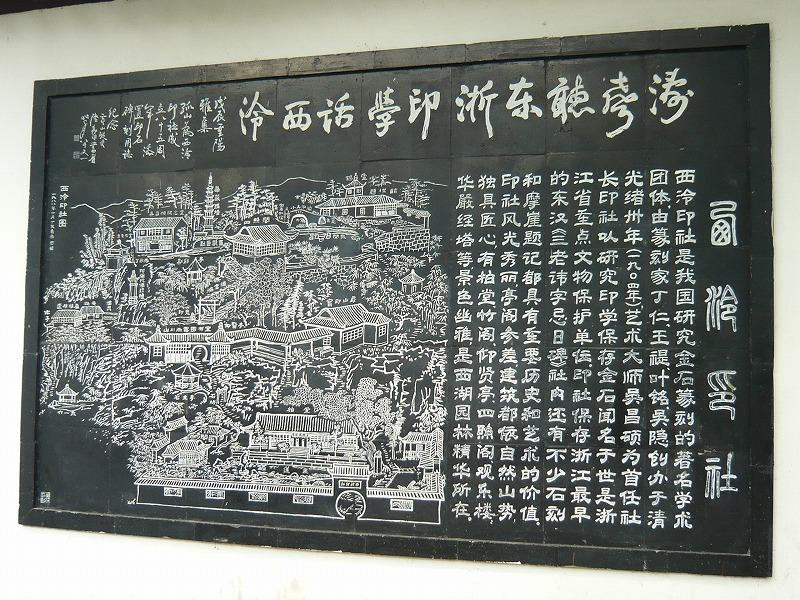 涛声听东浙印学话西泠
戊辰重阳
雅集
孤山为西泠
印社成
立八十五周
年
碑刻用志
纪念
西泠印社
西泠印社是我国研究金石篆刻的著名学术
团体由篆刻家丁仁王禔叶铭吴隐创办于清
光绪卅年(一九〇四年)艺术大师吴昌硕为首任社
长印社以研究印学保存金石闻名于世是浙
江省重点文物保护单位.印社保存浙江最早
的东汉《三老讳字忌日碑》社内还有不少石刻
和摩崖题记都具有重要历史和艺术的价值.
印社风光秀丽亭阁参差建筑都依自然山势,
独具匠心有柏堂竹阁仰贤亭四照阁观乐楼
华严经塔等景色幽雅是西湖园林精华所在.
西泠印社图
山川雨露图书室
柏堂